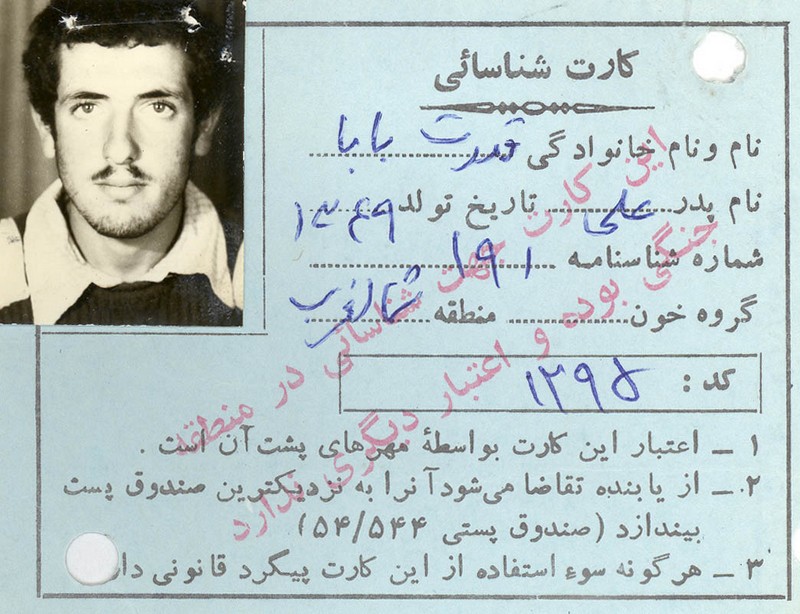 کارت شناسائی
نام و نام خانوادگی قدرت بابا
نام پدر علی تاریخ تولد ۱۳۴۹
شماره شناسنامه ۱۹۱
گروه خون منطقه شمالغرب
کد : ۱۲۹۵
۱ – اعتبار این کارت بواسطهٔ مهرهای پشت آن است .
۲ – از یابنده تقاضا می‌شود آنرا به نزدیکترین صندوق پست
بیندازد (صندوق پستی ۵۴/۵۴۴)
۳ – هرگونه سوء استفاده از این کارت پیگرد قانونی
این کارت جهت شناسائی در منطقه
جنگی بوده و اعتبار دیگری ندارد